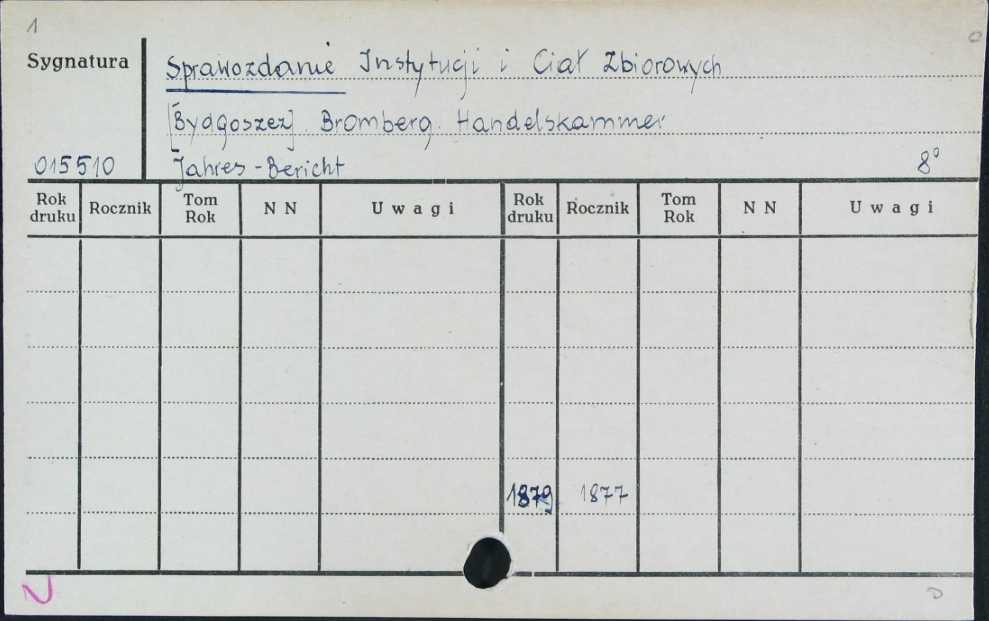 1
Sygnatura
Sprawozdanie Instytucji i Ciał Zbiorowych
[Bydgoszcz]. Bromberg. Handelskammer
015510 Jahres-Bericht 8°
Rok druku Rocznik Tom Rok N N Uwagi Rok druku Rocznik Tom Rok N N Uwagi
1879 1877